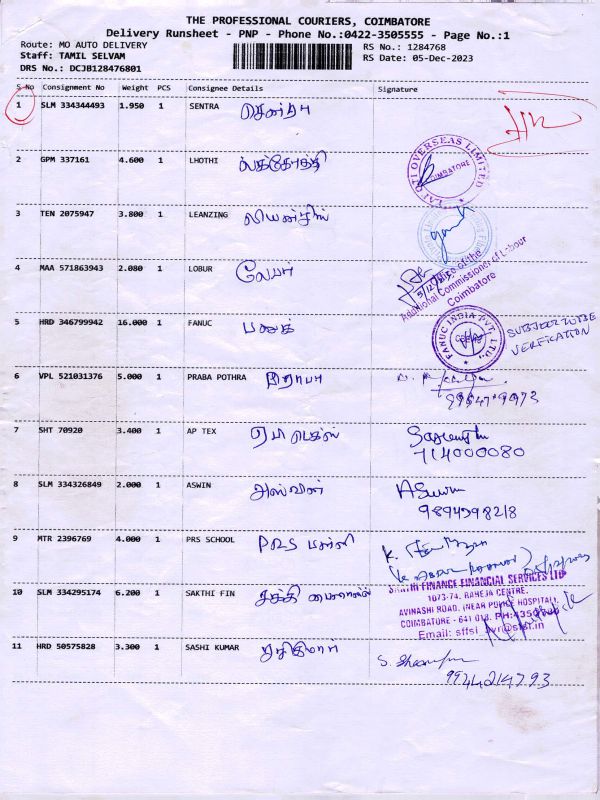 THE PROFESSIONAL COURIERS, COIMBATORE
Delivery Runsheet - PNP - Phone No.:0422-3505555 - Page No.:1
Route: MO AUTO DELIVERY RS No.: 1284768
Staff: TAMIL SELVAM RS Date: 05-Dec-2023
DRS No.: DCJB128476801
S No Consignment No Weight PCS Consignee Details Signature
1 SLM 334344493 1.950 1 SENTRA
2 GPM 337161 4.600 1 LHOTHI
LAHOTI OVERSEAS LIMITED COIMBATORE
3 TEN 2075947 3.800 1 LEANZING லியன்சிங்
4 MAA 571863943 2.080 1 LOBUR லேபர்
Office of the
Additional Commissioner of Labour
Coimbatore
5 HRD 346799942 16.000 1 FANUC பனுக்
FANUC INDIA PVT. LTD.,
SUBJECT TO BE
VERIFICATION
6 VPL 521031376 5.000 1 PRABA POTHRA பிரபா
7 SHT 70920 3.400 1 AP TEX ஏபி டெக்ஸ்
714000080
8 SLM 334326849 2.000 1 ASWIN அஸ்வின் ASwin
9894598218
9 MTR 2396769 4.000 1 PRS SCHOOL PRS பள்ளி
10 SLM 334295174 6.200 1 SAKTHI FIN சக்தி பைனான்ஸ்
SAKTHI FINANCE FINANCIAL SERVICES LTD
1073-74, RAHEJA CENTRE,
AVINASHI ROAD, (NEAR POLICE HOSPITAL),
COIMBATORE - 641 018.
11 HRD 50575828 3.300 1 SASHI KUMAR சசிகுமார்
9944214793